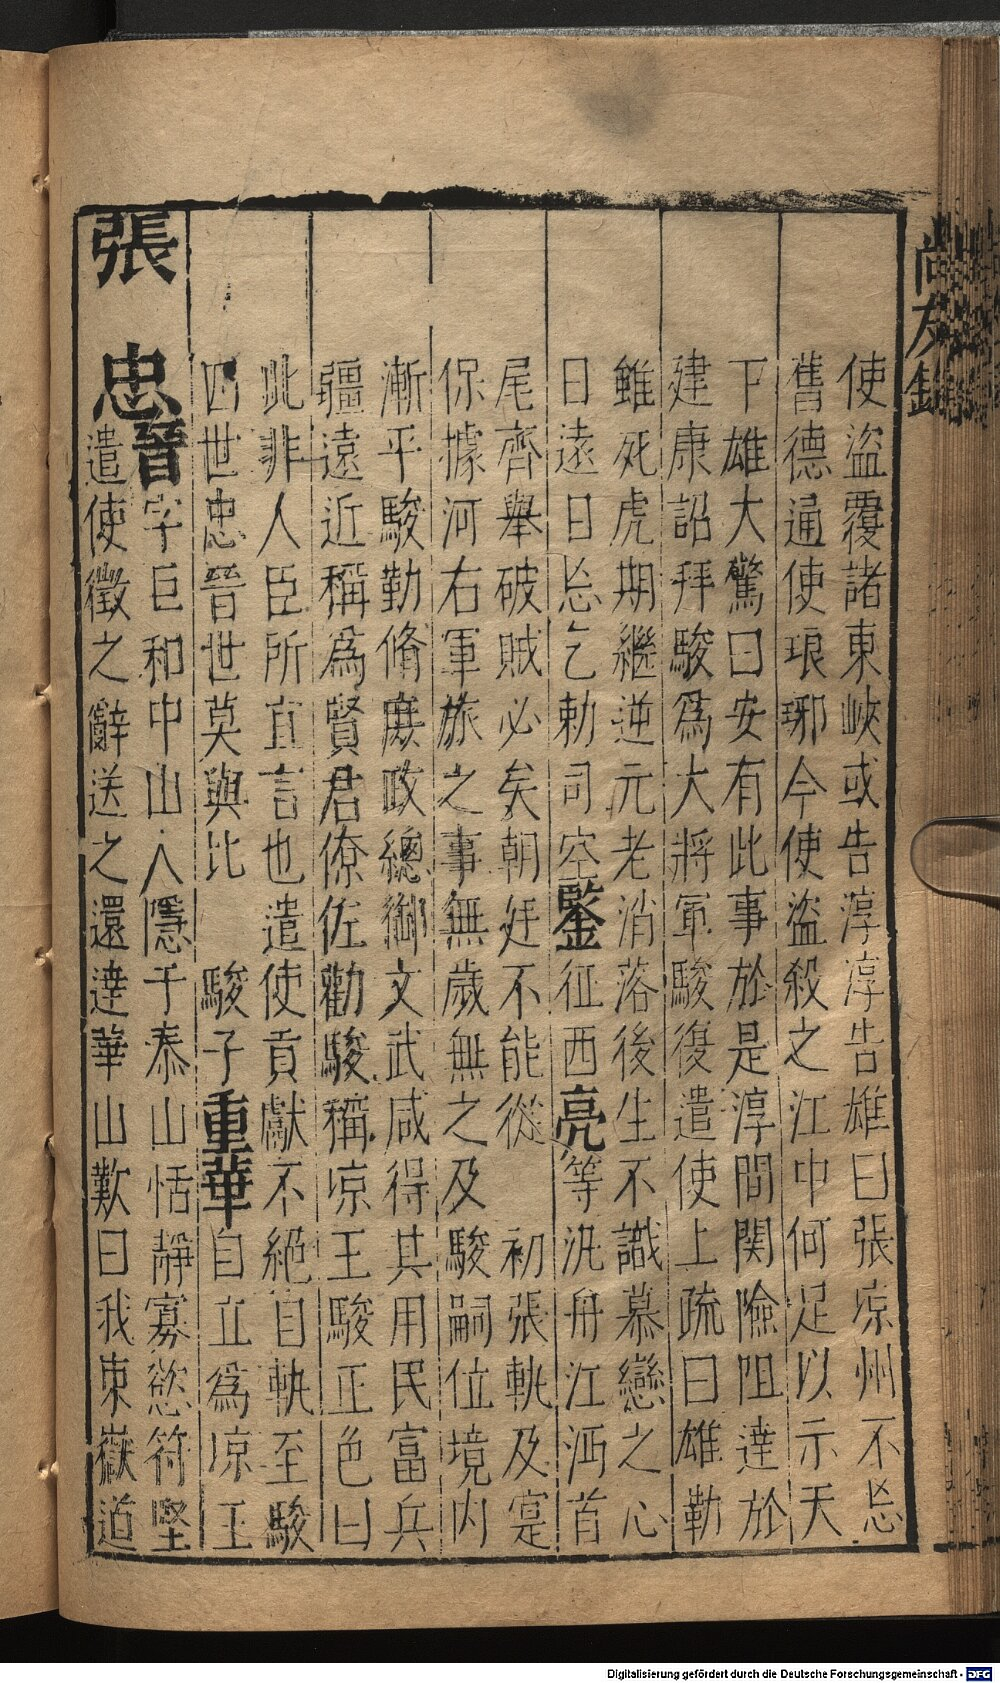 尚友錄
使盜覆諸東峽或告淳淳告雄曰張凉州不忘
舊德通使琅琊今使盜殺之江中何足以示天
下雄大驚曰安有此事於是淳間関險阻達於
建康詔拜駿爲大將軍駿復遣使上疏曰雄勒
雖死虎期繼逆元老消落後生不識慕戀之心
日遠日忘乞勅司空鑒征西亮等汎舟江沔首
尾齊舉破賊必矣朝廷不能從　初張軌及寔
保據河右軍旅之事無歲無之及駿嗣位境内
漸平駿勤脩庶政總御文武咸得其用民富兵
疆遠近稱爲賢君僚佐勸駿稱凉王駿正色曰
此非人臣所宜言也遣使貢獻不絕自軌至駿
四世忠晉世莫與比　駿子重華自立爲凉王
張　忠晉字巨和中山人隱于泰山恬靜寡慾符堅
遣使徵之辭送之還達華山歎曰我東嶽道
Digitalisierung gefördert durch die Deutsche Forschungsgemeinschaft - DFG